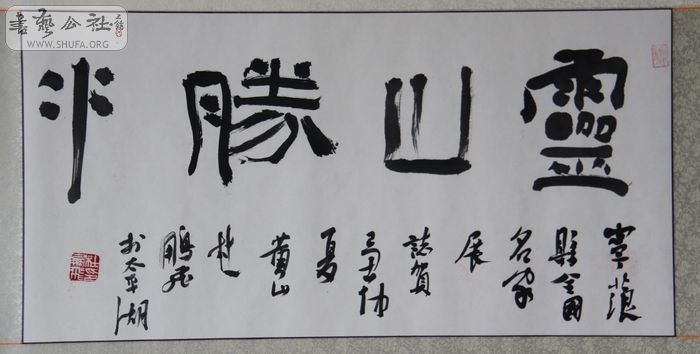 書藝公社
WWW.SHUFA.ORG
靈山勝水
縣全國
名家
展
誌賀
仲
夏
黃山
杜
鵬飛
於太平湖